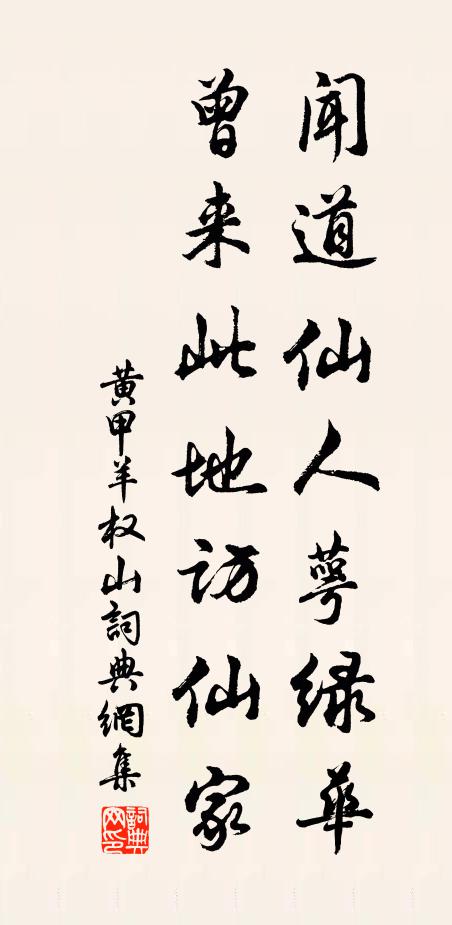 闻道仙人萼绿华
曾来此地访仙家
黄甲羊权山詞典網集
詞典网印